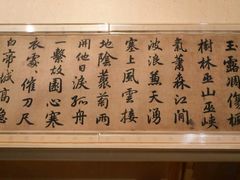 玉露凋傷楓
樹林巫山巫峽
氣蕭森江間
波浪兼天湧
塞上風雲接
地陰叢菊兩
開他日淚孤舟
一繫故園心寒
衣處々催刀尺
白帝城高急